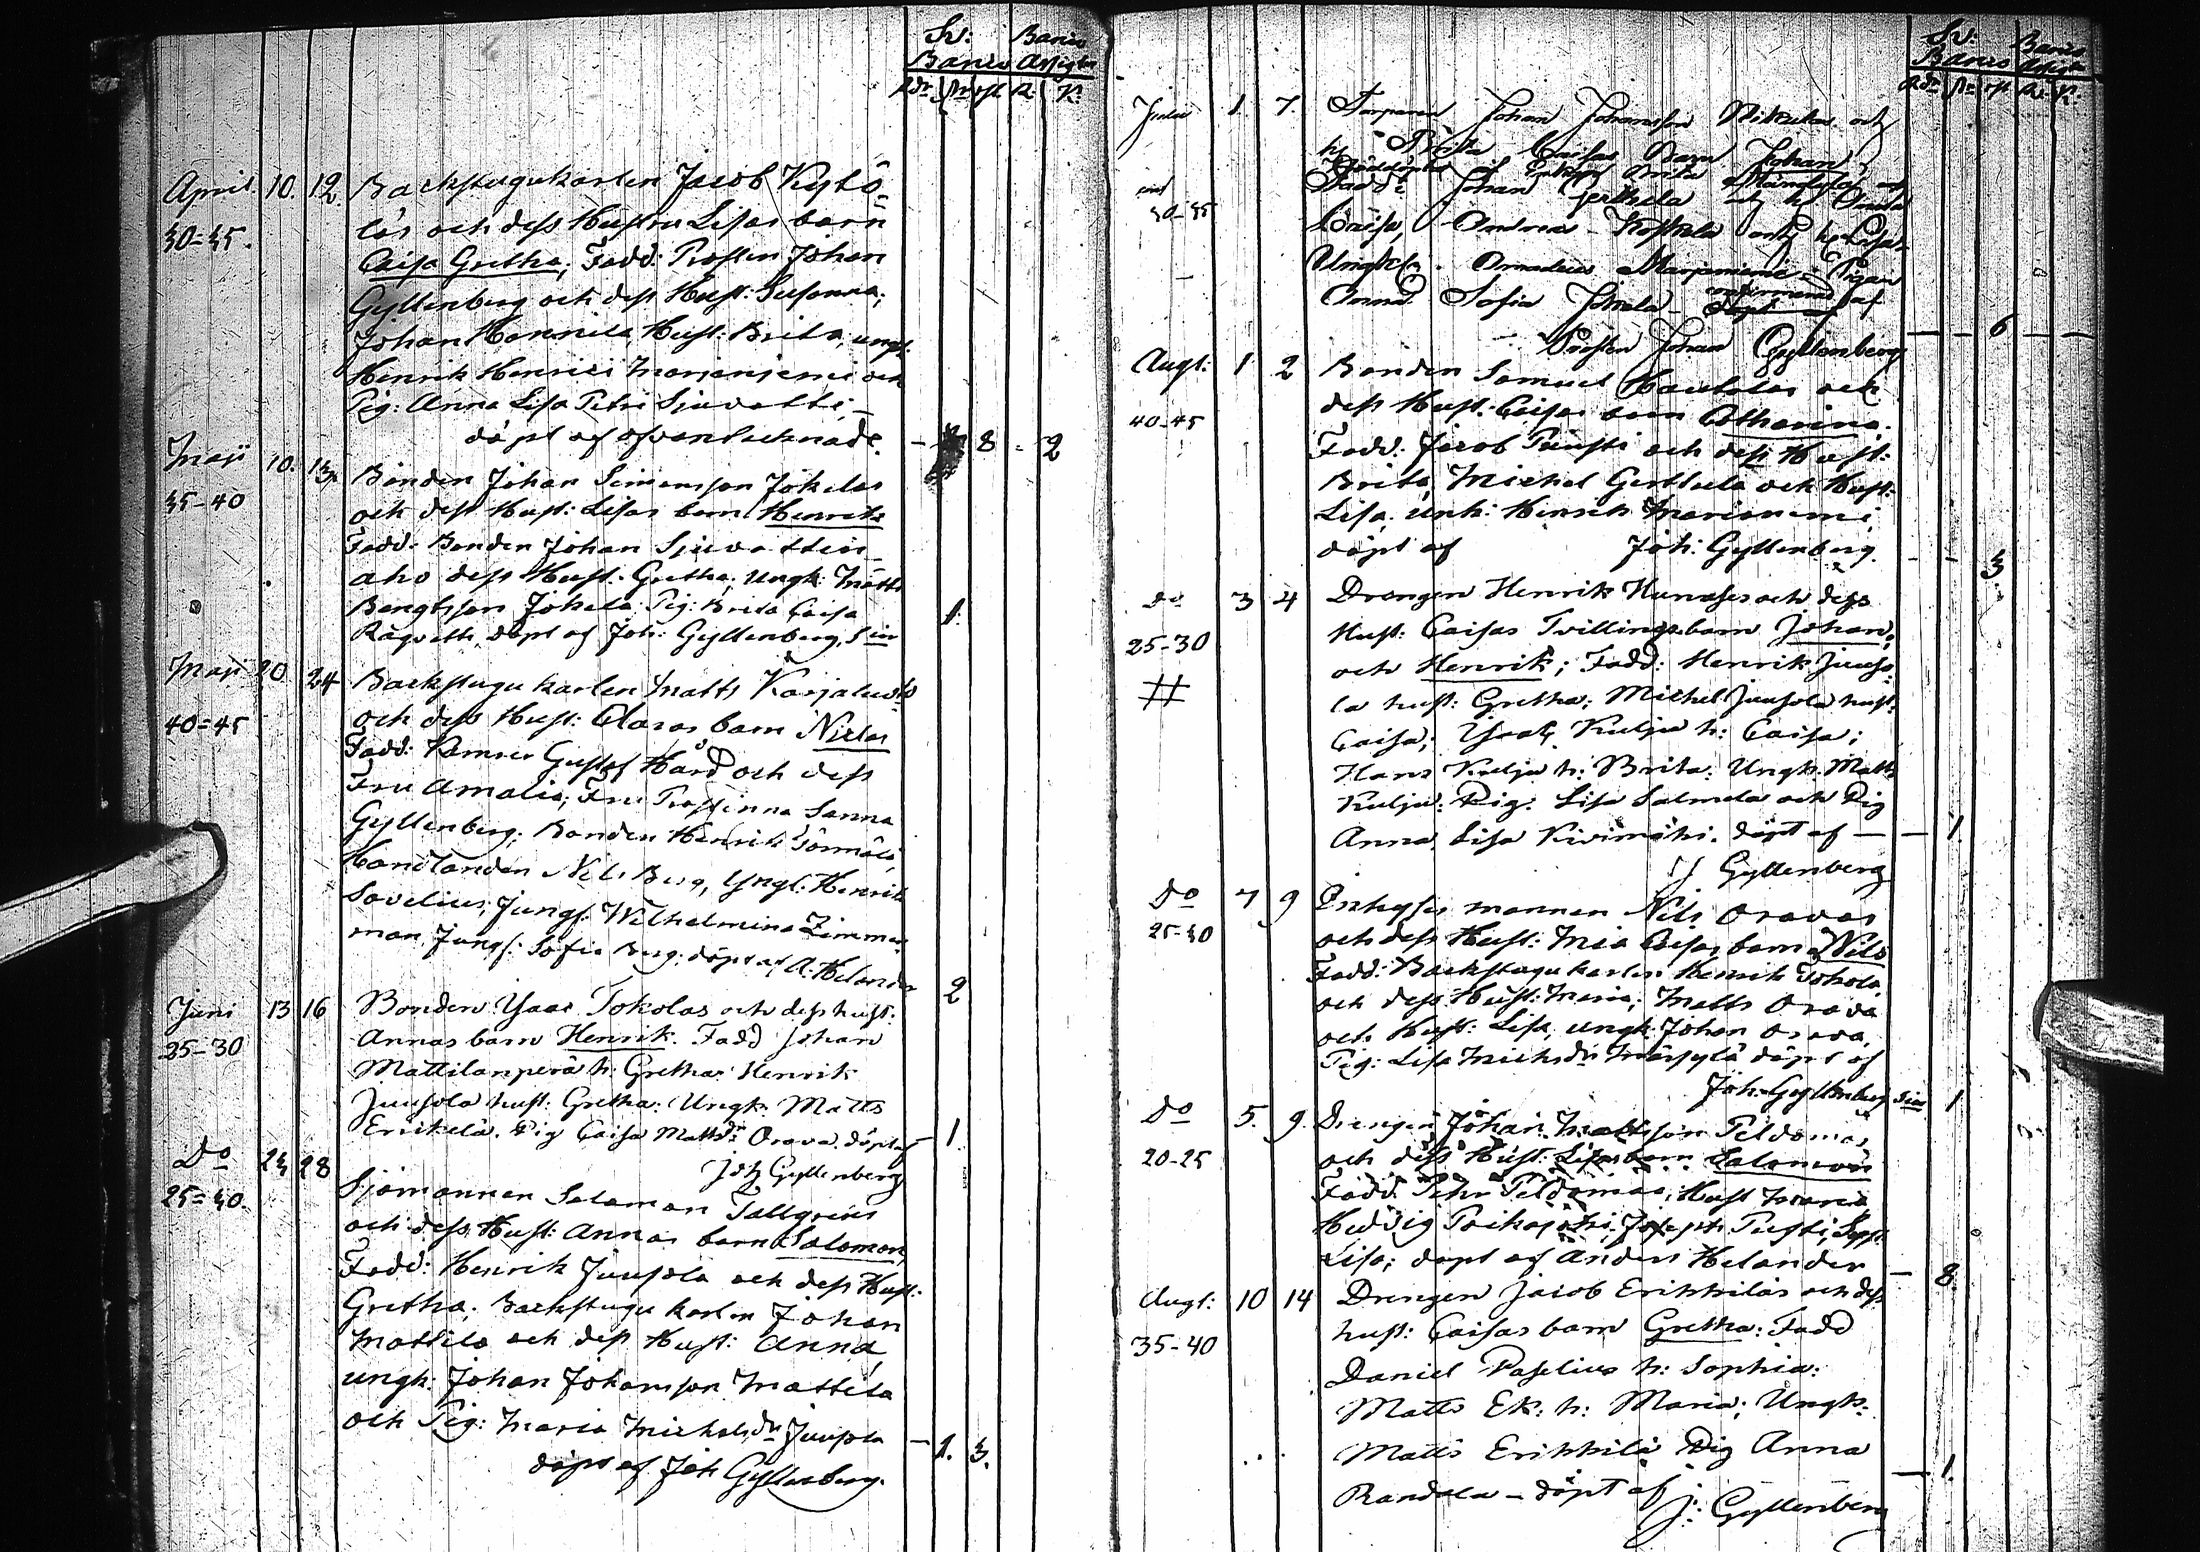 Sv: Banco
Banco Assign
Rdr sk rst R K
April 10. 12. Backstugukarlen Jacob Kylö-
30=35. läs och dess Hustru Lisas barn
Caisa Gretha; Fadd: Prosten Johan
Gyllenberg och dess Hust: Susanna;
Johan Hannila Hust: Brita, ungk:
Henrik Henrici Marjaniemi och
Pig: Anna Lisa Petri Sjuvatti —
döpt af ofvantecknade. — 8 - 2
Maji 10. 13 Bonden Johan Simonsson Jokelas
35-40 och dess Hust: Lisas barn Henrik
Fadd: Bonden Johan Sjuvattin-
aho dess Hust. Gretha; Ungk: Matts
Bengtsson Jokela Pig: Brita Caisa
döpt af Joh: Gyllenberg, Sin 1.
Maji 20 24 Backstugu karlen Matts Karjaluoto
40=45 och dess Hust: Claras barn Niclas
Fadd: Gustaf Hård och dess
Fru Amalia; Fru Prostinna Sanna
Gyllenberg; Bonden Henrik Törmälä
Handlanden Nils Berg, Yngl: Henrik
Savelius; Jungf: Wilhelmina Zimmer
man Jungf: Sofia Berg. döpt af A: Helander 2
Juni 13 16 Bonden Ysaac Tokolas och dess hust:
25-30 Annas barn Henrik. Fadd Johan
Mattilanperä h: Gretha: Henrik
Juusola hust: Gretha: Ungk: Matts
Erikelä. Pig Caisa Mattsdr Orava. döpt af — 1.
Joh Gyllenberg
Do 23 28 Sjömannen Salamon Tallgrens
25=30. och dess Hust: Annas barn Salomon,
Fadd: Henrik Juusola och dess Hust:
Gretha; Backstugu karlen Johan
Mattila och dess Hust: Anna,
ungk: Johan Johansson Mattila
och Pig: Maria Michelsdr Juusola — 1. 3.
döpt af Joh Gyllenberg.
Sv: Banco
Banco Assign
Rdr sk rst R K
Julii 1. 7. Torparen Johan Johansson och
h: Brita Caisas Barn Johan;
30-35 Fadd: Johan Gerttula och h:
Caisa, Andreas Koskela och h: Lisa
Ungk: Amadeus Marjaniemi - Pigan
Anna Sofia Jokela - döpt af
Prosten Johan Gyllenberg — 6 —
Augt: 1 2 Bonden Samuel Hautalas och
40-45 dess Hust: Caisas barn Catharina.
Fadd: Jacob Puusti och dess Hust:
Brita, Michel Gerttula och Hust:
Lisa. unk: Henrik Mariniemi,
döpt af Joh: Gyllenberg. - - 3
Do 3 4 Drangen Henrik Hunases och dess
25-30 Hust: Caisas Tvillingsbarn Johan,
# och Henrik; Fadd: Henrik Juuso-
la hust: Gretha; Michel Juusola hust:
Caisa; Ysac Kulju h: Caisa;
Hans Kulju h: Brita: Ungk: Matts
Kulju: Pig: Lisa Salmela och Pig
Anna Lisa Kivimäki. döpt af — — 1.
J Gyllenberg
Do 7 9 mannen Nils Oravas
25-30 och dess Hust: Maja Caisas barn Nils
Fadd: Backstugu karlen Henrik Tokola
och dess Hust: Maria; Matts Orava
och Hust: Lisa, ungk Johan Orava,
Pig: Lisa Michelsdr Märsylä döpt af
Joh: Gyllenberg Sin 1
Do 5. 9. Drengen Johan Mattsson Peldomas
20-25 och dess Hust: Lisas barn Salomon
Fadd. Pehr Peldomaa, Hust Maria
Hedvig Joseph Pusti,
Lisa; döpt af Anders Helander — 8.
Augt: 10 14 Drengen Jacob Erikkiläs och dess
35-40 hust: Caisas barn Gretha: Fadd
Daniel Paselius h: Sophia:
Matts Ek: h: Maria; Ungk:
Matts Erikkilä Pig Anna
Randala — döpt af — 1.
J: Gyllenberg